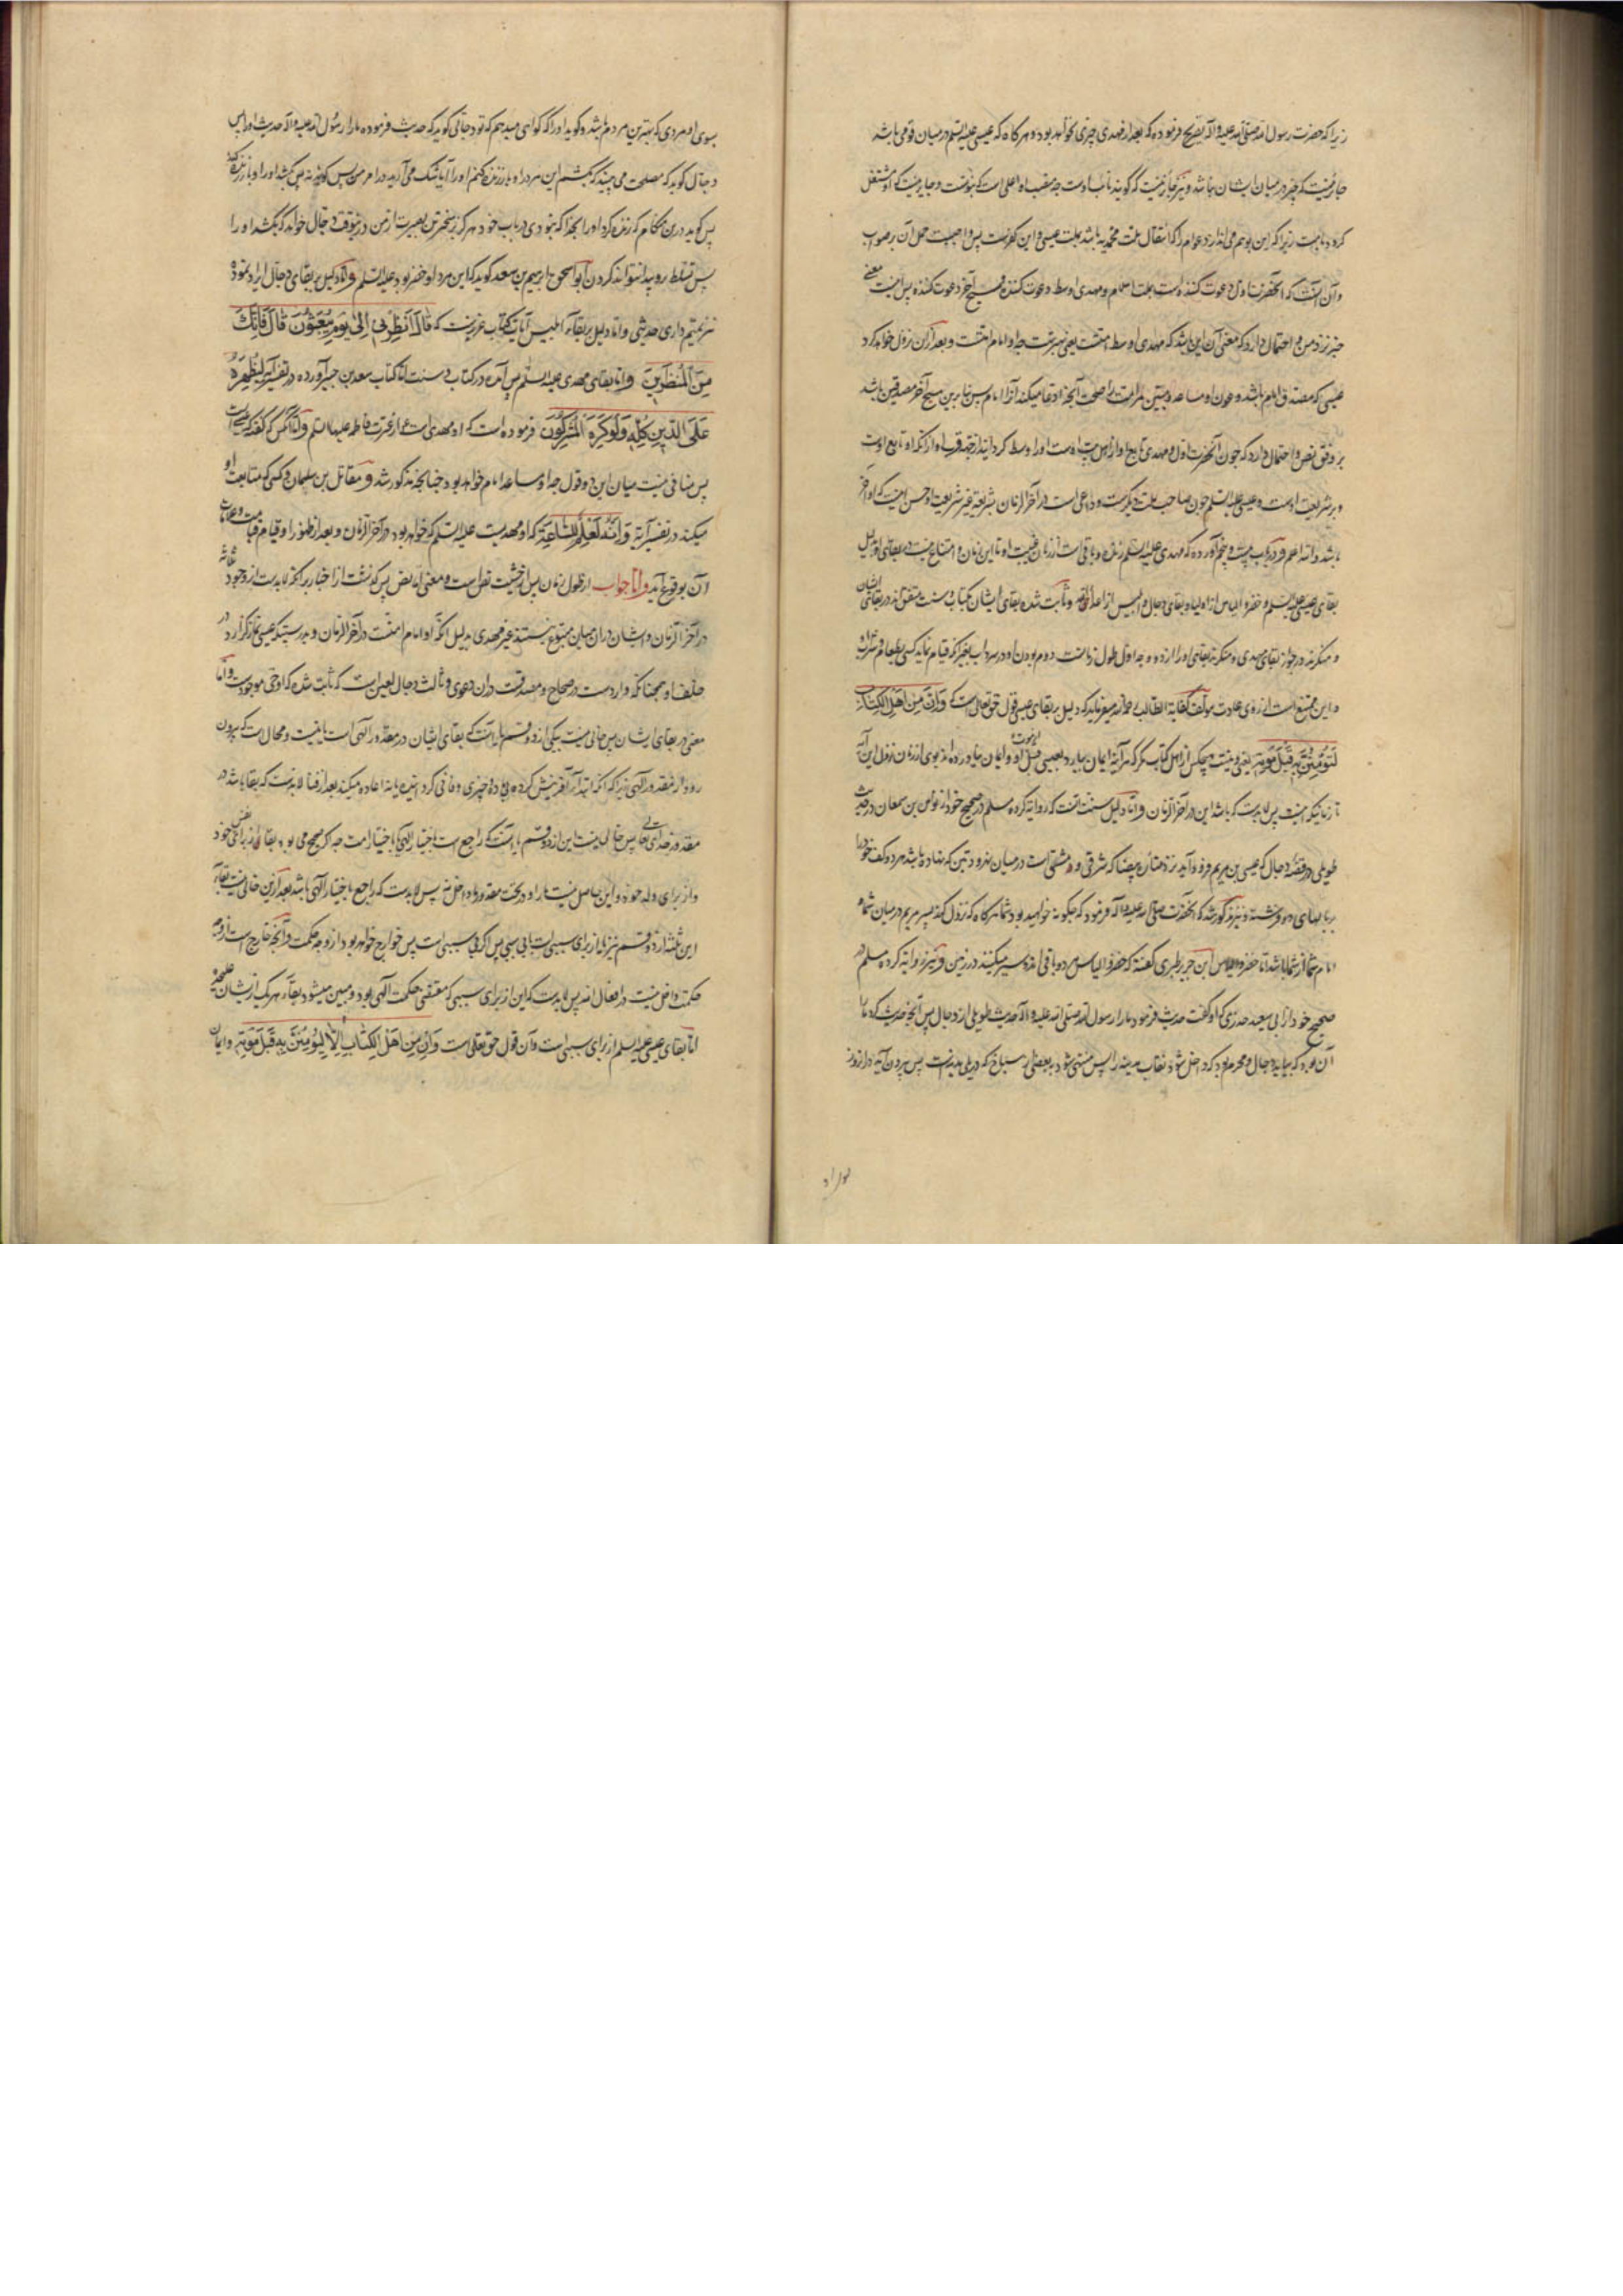 زیرا که حضرت رسول الله صلی الله علیه و آله تصریح فرموده که بعد از مهدی چیزی نخواهد بود و هر گاه که عیسی علیه السلم در میان قومی باشد
جایز نیست که غیر در میان ایشان باشد و نیز جایز نیست که گویند نایب اوست چه منصب او اعلی است که نوشت و جایز نیست که او مستقل
کرده باشد زیرا که این توهم می اندازد عوام را که انتقال ملت محمدیه باشد بملت عیسی و این کفرست پس واجبست حمل آن بر صواب
و آن اینست که آنحضرت اول دعوت کننده است بملت اسلام و مهدی اوسط دعوت کننده و مسیح آخر دعوت کننده پس اینست معنی
خبر نزد من و احتمال دارد که معنی آن این باشد که مهدی اوسط امتست یعنی بهترینست چه او امام امتست و بعد ازن نزول خواهد کرد
عیسی که مصدق امام باشد و عون او مساعد و مبین مر امت را صحت آنچه ادعا میکند آنرا امام پس بنابرین مسیح آخر مصدقین باشد
بر وفق نص و احتمال دارد که چون آنحضرت اول و مهدی تابع او از اهل بیت اوست او را وسط گردانیده از جهت قرب او از آنکه او تابع اوست
و بر شریعت اوست و عیسی علیه السلم چون صاحب ملت دیگرست و داعی است در آخر الزمان بشریعة غیر شریعت او حسن اینست که او آخر
باشد والله اعلم و در باب بیست و پنجم آورده که مهدی علیه السلم زنده و باقی است از زمان غیبت او تا این زمان و امتناع نیست در بقای او بدلیل
بقای عیسی علیه السلم و خضر و الیاس از اولیا و بقای دجال و ابلیس از اعدا الله و ثابت شده بقای ایشان بکتاب و سنت و متفق اند در بقای ایشان
و منکرند در جواز بقای مهدی و منکرند بقای او را از دو وجه اول طول زمانست دوم بودن او در سرداب بغیر آنکه قیام نماید کسی بطعام و شراب او
و این ممتنع است از روی عادت مؤلف کفایة الطالب رحمه الله میفرماید که دلیل بر بقای عیسی قول حق تعالی است که وَاِنْ مِنْ اَهْلِ الْکِتَابِ
لَیُؤْمِنَنَّ بِهِ قَبْلَ مَوْتِهِ یعنی و نیست هیچکس از اهل کتاب مگر که هر آینه ایمان بیارد بعیسی قبل از موت او و ایمان نیاورده اند بوی از زمان نزول این آیه
تا زمانیکه اینست پس لابدست که باشد این در آخر الزمان و اما دلیل سنت آنست که روایة کرده مسلم در صحیح خود از نواس بن سمعان در حدیث
طویلی در قصه دجال که عیسی بن مریم فرود آید نزد مناره بیضا که شرقی دمشق است در میان بدو جامه که نهاده باشد هر دو کف خود را
بر بالهای دو فرشته و نیز مذکور شد که آنحضرت صلی الله علیه و آله فرمود که چگونه خواهید بود شما هر گاه که نزول کند پسر مریم در میان شما و
امام شما از شما باشد اما خضر و الیاس ابن جریر طبری گفته که خضر و الیاس هر دو باقی اند و سیر میکنند در زمین و نیز روایة کرده مسلم در
صحیح خود از ابی سعید خدری که او گفت حدیث فرمود ما را رسول الله صلی الله علیه و آله حدیث طویلی از دجال پس آنچه حدیث کرد ما را
آن بود که بیاید دجال و محرم بود که داخل شود نقاب مدینه را پس منتهی شود ببعضی از سباخ که در پلی مدینه است پس بیرون آید در آن روز
بسوی او مردی که بهترین مردم باشد و گوید او را که گواهی میدهم که تو دجالی که حدیث فرموده ما را رسول الله علیه و آله حدیث او را پس
دجال گوید که مصلحت می بینید که بکشم این مرد را و باز زنده کنم او را آیا شک می آرید در امر من پس گویند نه پس بکشد او را و باز زنده کند
پس گوید در ین هنگام که زنده کرده او را بخدا که نبودی در باب خود هرگز سخت ترین بصیرت از من درینوقت دجال خواهد که بکشد او را
پس تسلط برو پیدا نتواند کردن ابو اسحق ابراهیم بن سعد گوید که این مرد او خضر بود علیه السلم و اما دلیل بر بقای دجال ایراد نموده
نیز تمیم داری حدیثی و اما دلیل بر بقاء ابلیس آیات کتاب عزیزست که قَالَ اَنْظِرْنِی اِلَی یَوْمِ یُبْعَثُونَ قَالَ فَاِنَّکَ
مِنَ الْمُنْظَرِینَ و اما بقای مهدی علیه السلم پس آمده در کتاب و سنت اما کتاب سعید بن جبیر آورده در تفسیر آیه لِیُظْهِرَهُ
عَلَی الدِّینِ کُلِّهِ وَلَوْ کَرِهَ الْمُشْرِکُونَ فرموده است که او مهدی است از عترت فاطمه علیها السلم و اما آنکس که گفته که عیسی است
پس منافی نیست میان این دو قول چه او مساعد امام خواهد بود چنانچه مذکور شد و مقاتل بن سلیمان و کسی که متابعت او
میکند در تفسیر آیة وَاِنَّهُ لَعِلْمٌ لِلسَّاعَةِ که او مهدیست علیه السلم که خواهد بود در آخر الزمان و بعد از ظهور او قیام قیامت و علامات
آن بوقوع آید و اما جواب از طول زمان پس از حیثیت نص است و معنی اما نص پس گذشت از اخبار بر آنکه لابدست از وجود ثلثه
در آخر الزمان و ایشان در ان میان متبوع نیستند غیر مهدی بدلیل آنکه او امام امتست در آخر الزمان و بدرستیکه عیسی نماز گزارد در
خلف او همچنانکه وارد است در صحاح و مصدقست در ان دعوی و ثالث دجال لعین است که ثابت شده که او حی موجودست و اما
معنی در بقای ایشان پس خالی نیست یکی از دو قسم یا آنست که بقای ایشان در مقدور الهی است یا نیست و محال است که بیرون
رود از مقدور الهی زیرا که آنکه ابتدا آفرینش کرده بی ماده چیزی و فانی گرداننده باز اعاده میکند بعد از فنا لابدست که بقا باشد در
مقدور خدای تعالی پس خالی نیست این از دو قسم یا آنست که راجع است باختیار الهی یا باختیار امت چه اگر صحیح می بود بقا برای نفس خود
و از برای ولد خود و این حاصل نیست ما را و در تحت مقدور ما داخل نه پس لابدست که راجع باختیار الهی باشد بعد ازین خالی نیست بقاء
این ثلثه از دو قسم نیز یا از برای سببی است یا بی سبب پس اگر بی سببی است پس خوارج خواهد بود از وجه حکمت و آنچه خارج است از وجه
حکمت داخل نیست در افعال الله پس لابدست که این از برای سببی که مقتضی حکمت الهی بود و مبین میشود بقاء هر یک از ایشان علیحده
اما بقای عیسی علیه السلم از برای سببی است و آن قول حق تعالی است وَاِنْ مِنْ اَهْلِ الْکِتَابِ اِلَّا لَیُؤْمِنَنَّ بِهِ قَبْلَ مَوْتِهِ و ایمان